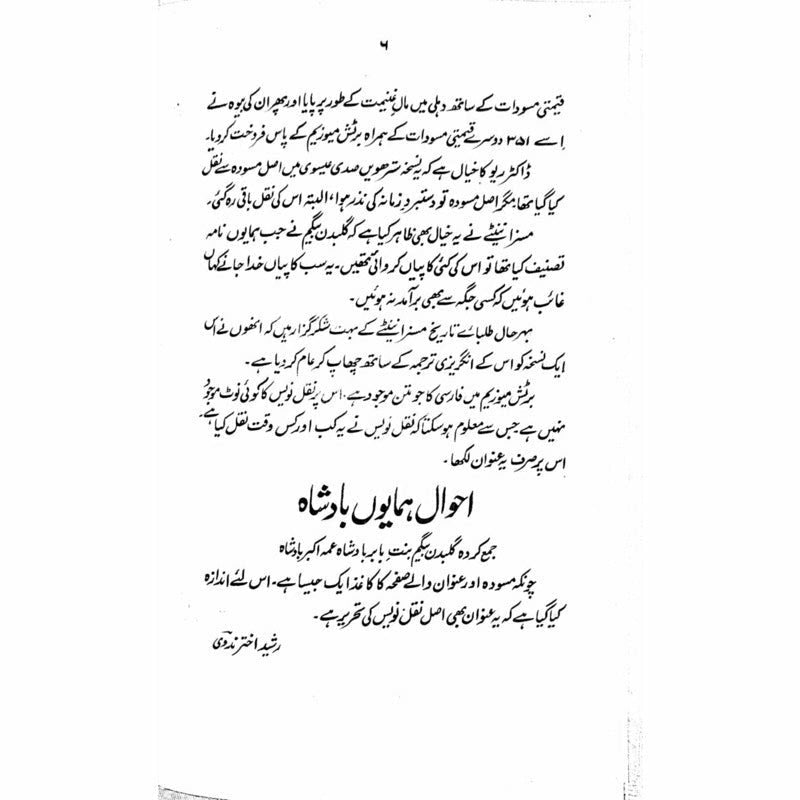 ۶
قیمتی مسودات کے ساتھ دہلی میں مالِ غنیمت کے طور پر پایا اور پھر ان کی بیوہ نے
اِسے ۳۵۱ دوسرے قیمتی مسودات کے ہمراہ برٹش میوزیم کے پاس فروخت کر دیا۔
ڈاکٹر ریو کا خیال ہے کہ یہ نسخہ سترھویں صدی عیسوی میں اصل مسودہ سے نقل
کیا گیا تھا، مگر اصل مسودہ تو دستبردِ زمانہ کی نذر ہوا، البتہ اس کی نقل باقی رہ گئی۔
مسز اینیٹے نے یہ خیال بھی ظاہر کیا ہے کہ گلبدن بیگم نے جب ہمایوں نامہ
تصنیف کیا تھا تو اس کی کئی کاپیاں کروائی تھیں۔ یہ سب کاپیاں خدا جانے کہاں
غائب ہوئیں کہ کسی جگہ سے بھی برآمد نہ ہوئیں۔
بہرحال طلبائے تاریخ مسز اینیٹے کے بہت شکر گزار ہیں کہ انھوں نے اس
ایک نسخہ کو اس کے انگریزی ترجمہ کے ساتھ چھاپ کر عام کر دیا ہے۔
برٹش میوزیم میں فارسی کا جو متن موجود ہے، اس پر نقل نویس کا کوئی نوٹ موجود
نہیں ہے جس سے معلوم ہو سکتا کہ نقل نویس نے یہ کب اور کس وقت نقل کیا ہے۔
اس پر صرف یہ عنوان لکھا۔
احوال ہمایوں بادشاہ
جمع کردہ گلبدن بیگم بنتِ بابر بادشاہ عمہ اکبر بادشاہ
چونکہ مسودہ اور عنوان والے صفحہ کا کاغذ ایک جیسا ہے۔ اس لئے اندازہ
کیا گیا ہے کہ یہ عنوان بھی اصل نقل نویس کی تحریر ہے۔
رشید اختر ندوی